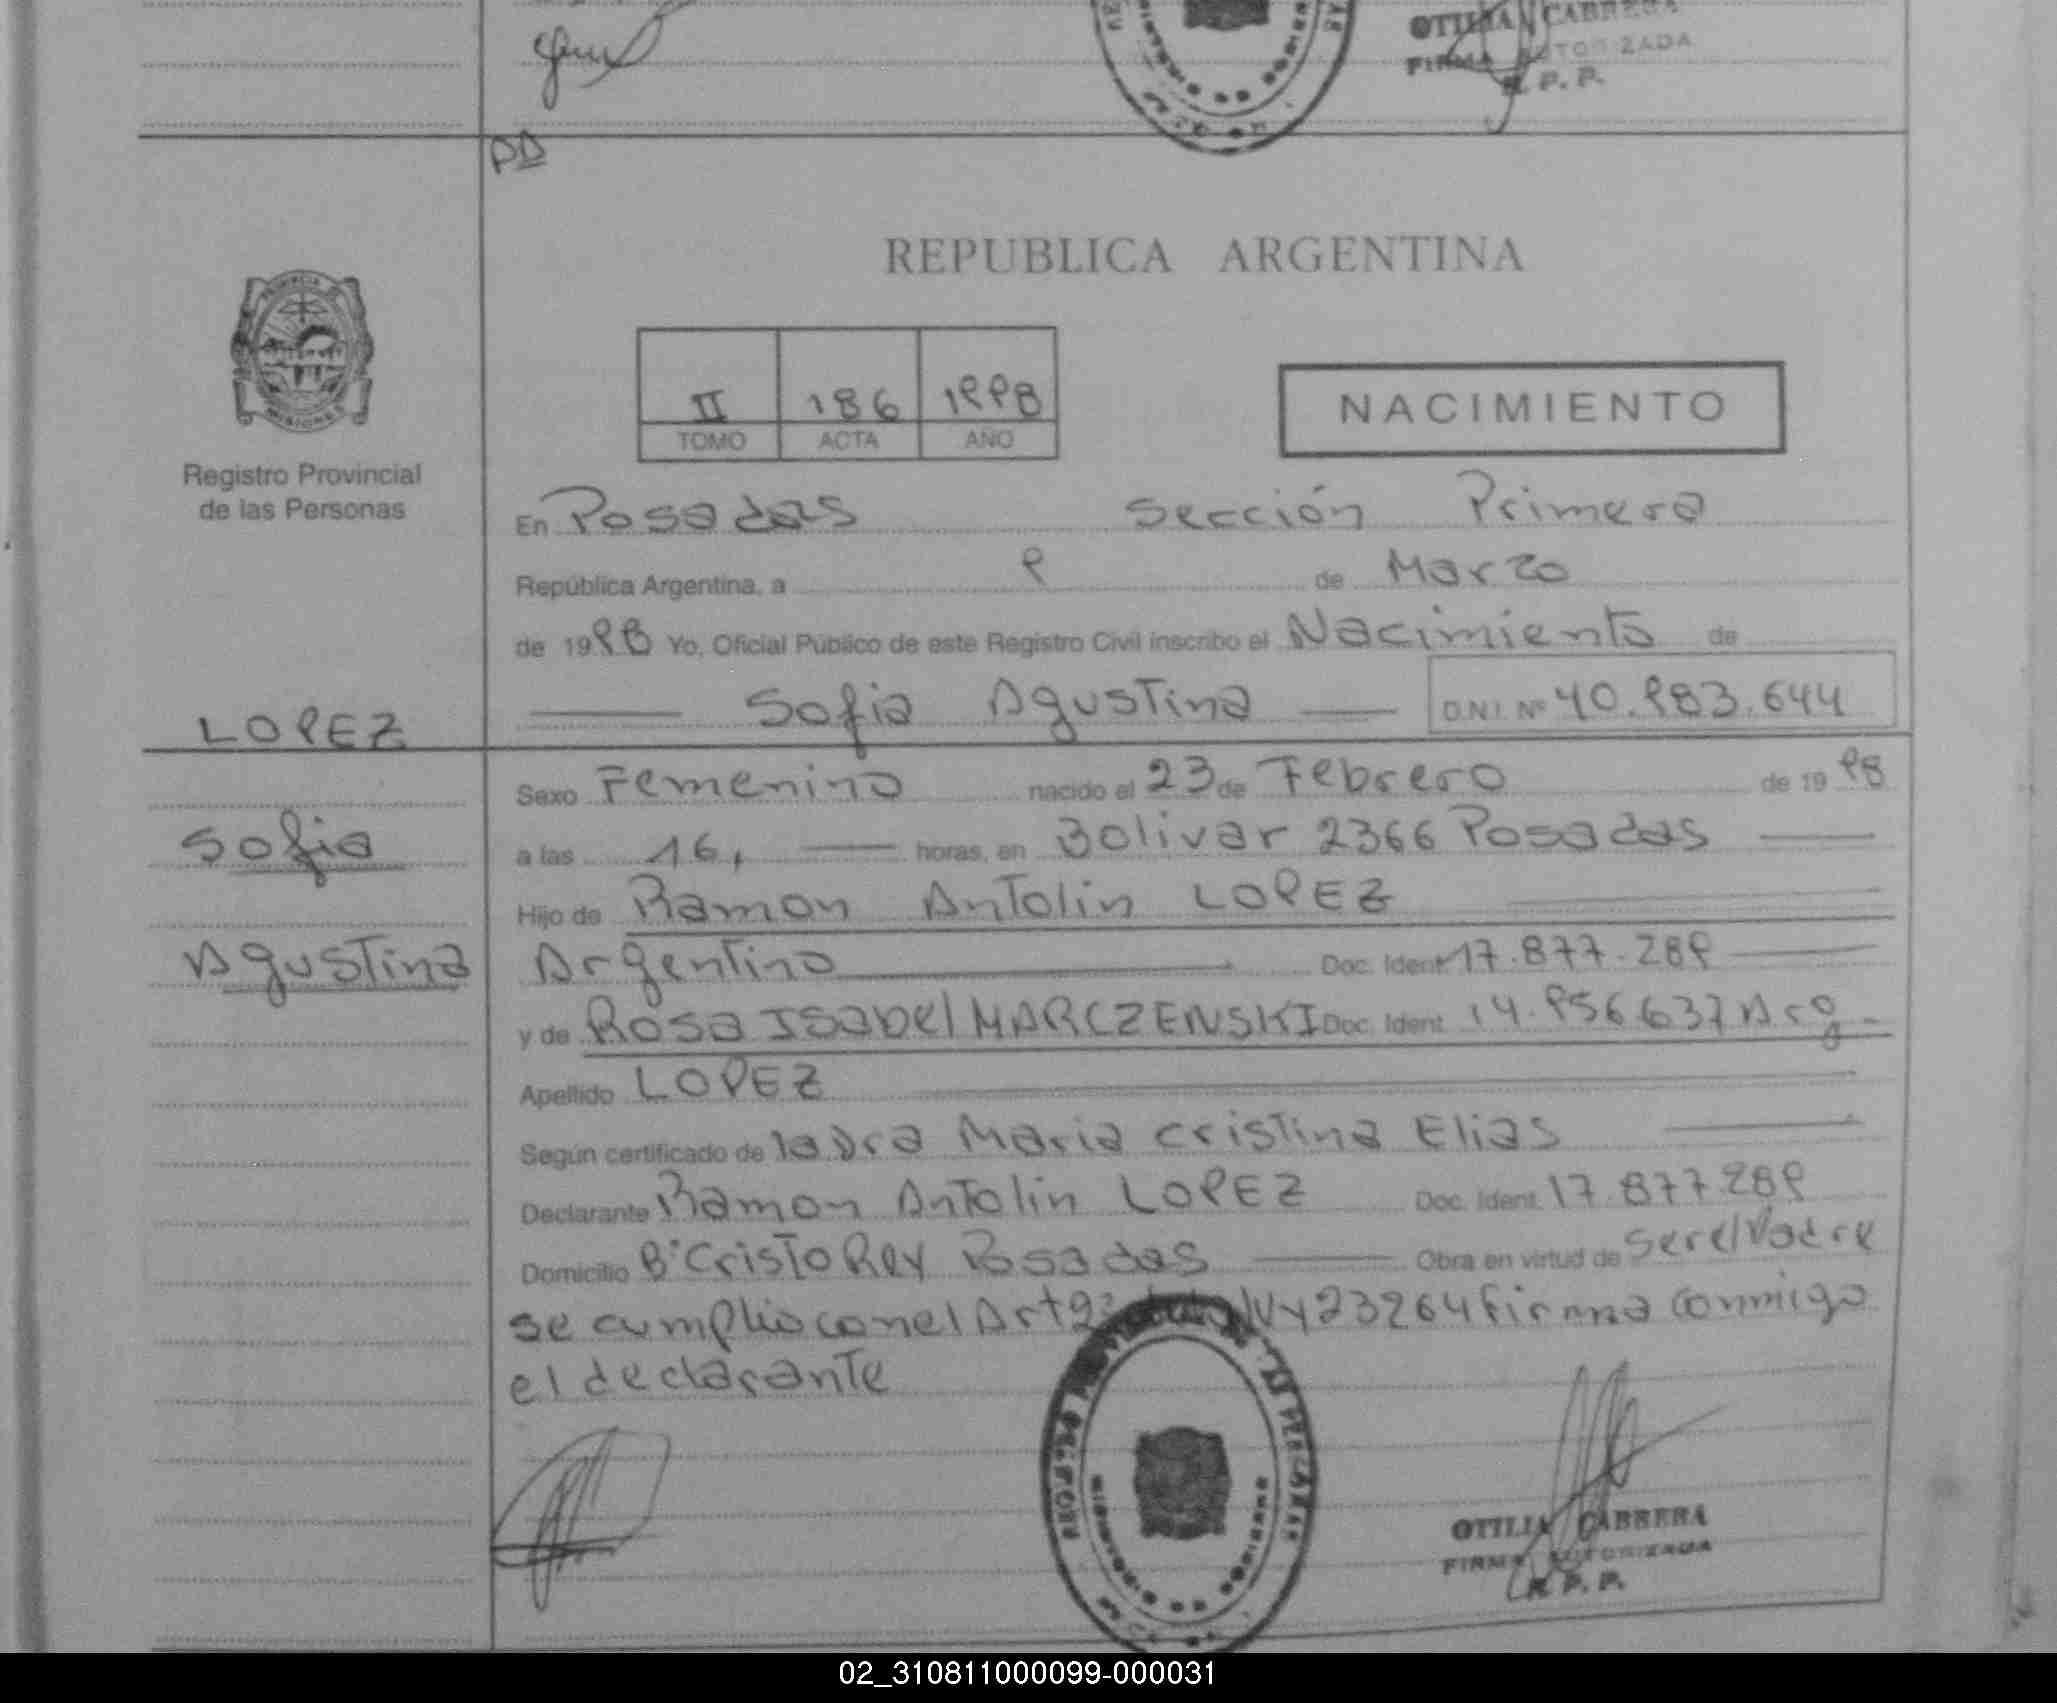 OTILIA CABRERA
FIRMA AUTORIZADA
R. P. P.
PD
REPUBLICA ARGENTINA
II 186 1998
TOMO ACTA AÑO
NACIMIENTO
Registro Provincial
de las Personas
En Posadas Sección Primera
República Argentina, a 9 de Marzo
de 1998 Yo, Oficial Público de este Registro Civil inscribo el Nacimiento de
LOPEZ
Sofia Agustina D.N.I. Nº 40.983.644
Sexo Femenino nacido el 23 de Febrero de 1998
Sofia
a las 16, horas, en Bolivar 2366 Posadas
Hijo de Ramon Antolin LOPEZ
Agustina
Argentino Doc. Ident. 17.877.289
y de Rosa Isabel MARCZENSKI Doc. Ident. 14.956637 Arg
Apellido LOPEZ
Según certificado de la Dra Maria Cristina Elias
Declarante Ramon Antolin LOPEZ Doc. Ident. 17.877.289
Domicilio Bº Cristo Rey Posadas Obra en virtud de ser el Padre
se cumplio con el Art 2º 23264 firma conmigo
el declarante
REGISTRO PROVINCIAL DE LAS PERSONAS
MISIONES
OTILIA CABRERA
FIRMA AUTORIZADA
R. P. P.
02_310811000099-000031